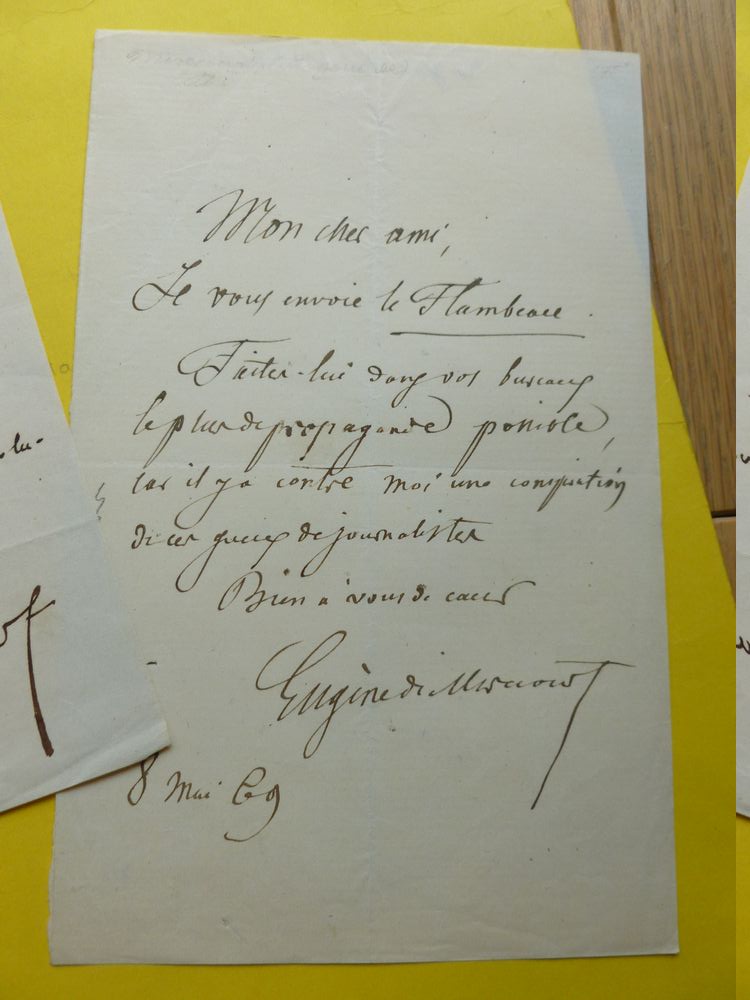 Mon cher ami,
Je vous envoie le Flambeau.
Faites-lui dans vos bureaux
le plus de propagande possible,
car il y a contre moi une conspiration
de ces gueux de journalistes
Bien à vous de cœur
Eugène de Mirecourt
8 Mai 69